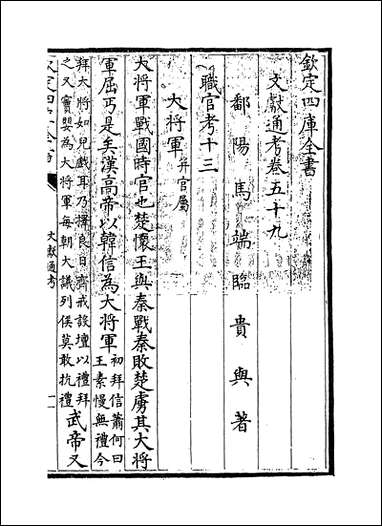 欽定四庫全書
文獻通考卷五十九
鄱陽馬端臨貴與著
職官考十三
大將軍 并官屬
大將軍戰國時官也楚懷王與秦戰秦敗楚虜其大將
軍屈丐是矣漢高帝以韓信為大將軍 初拜信蕭何曰
王素慢無禮今
拜大將如兒戲耳乃擇良日齋戒設壇以禮拜
之又竇嬰為大將軍每朝大議列侯莫敢抗禮
武帝又
文獻通考